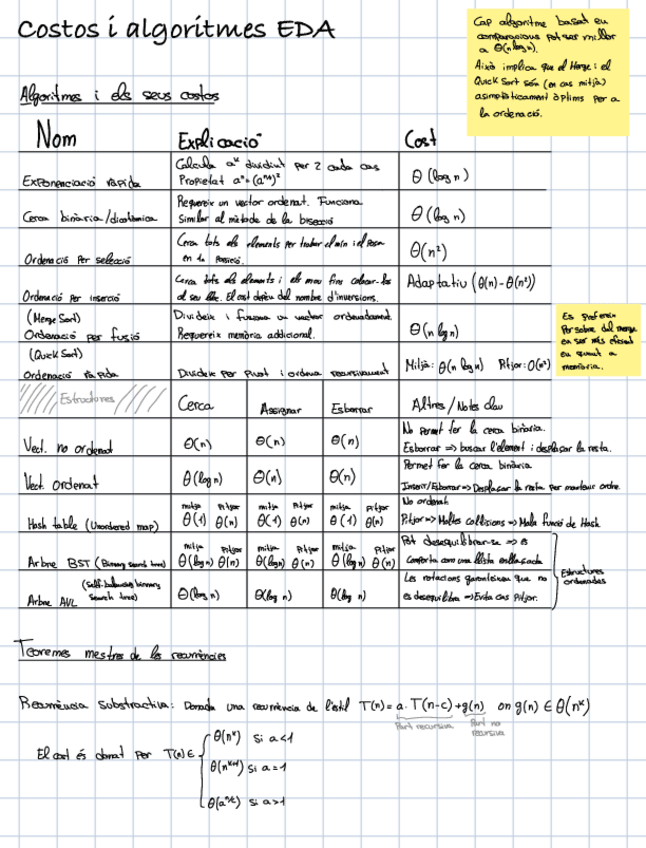 Costos i algoritmes EDA
Cap algoritme basat en
comparacions pot ser millor
a Θ(n log n).
Això implica que el Merge i el
Quick Sort són (en cas mitjà)
asimptòticament òptims per a
la ordenació.
Algoritmes i els seus costos
Nom Explicació Cost
Exponenciació ràpida
Calcula aᵏ dividint per 2 cada cas
Propietat
Θ(log n)
Cerca binària/dicotòmica
Requereix un vector ordenat. Funciona
Similar al mètode de la bisecció
Θ(log n)
Ordenació per selecció
Cerca tots els elements per trobar el min i el posa
en 1a posició.
Θ(n²)
Ordenació per inserció
Cerca tots els elements i els mou fins colocar-los
al seu lloc. El cost depèn del nombre d'inversions.
Adaptatiu (Θ(n)-Θ(n²))
(Merge Sort)
Ordenació per fusió
Divideix i fusiona un vector ordenadament.
Requereix memòria addicional.
Θ(n log n)
Es prefereix
per sobre del merge
en ser més eficient
en quant a
memòria.
(Quick Sort)
Ordenació ràpida
Divideix per Pivot i ordena recursivament
Mitjà: Θ(n log n) Pitjor: O(n²)
Estructures Cerca Assignar Esborrar Altres/Notes clau
Vect. no ordenat Θ(n) Θ(n) Θ(n)
No permet fer la cerca binària.
Esborrar => buscar l'element i desplaçar la resta.
Vect. ordenat Θ(log n) Θ(n) Θ(n)
Permet fer la cerca binària
Inserir/Esborrar => Desplaçar la resta per mantenir ordre.
Hash table (Unordered map)
mitjà Pitjor mitjà Pitjor mitjà Pitjor
Θ(1) Θ(n) Θ(1) Θ(n) Θ(1) Θ(n)
No ordenat
Pitjor => Moltes collisions => Mala funció de Hash
Arbre BST (Binary search tree)
mitjà Pitjor mitjà Pitjor mitjà Pitjor
Θ(log n) Θ(n) Θ(log n) Θ(n) Θ(log n) Θ(n)
Pot desequilibrar-se => es
comporta com una llista enllaçada
Arbre AVL
(Self-balancing binary
search tree)
Θ(log n) Θ(log n) Θ(log n)
Les rotacions garanteixen que no
es desequilibra => Evita cas Pitjor.
Estructures
ordenades
Teoremes mestres de les recurrències
Recurrència substractiva: Donada una recurrència de l'estil T(n)=a.T(n-c)+g(n) on g(n) ∈ Θ(nᵏ)
Part recursiva Part no
recursiva
El cost és donat per T(n) ∈
Θ(nᵏ) si a<1
Θ(nᵏ⁺¹) si a=1
Θ(aⁿᐟᶜ) si a>1